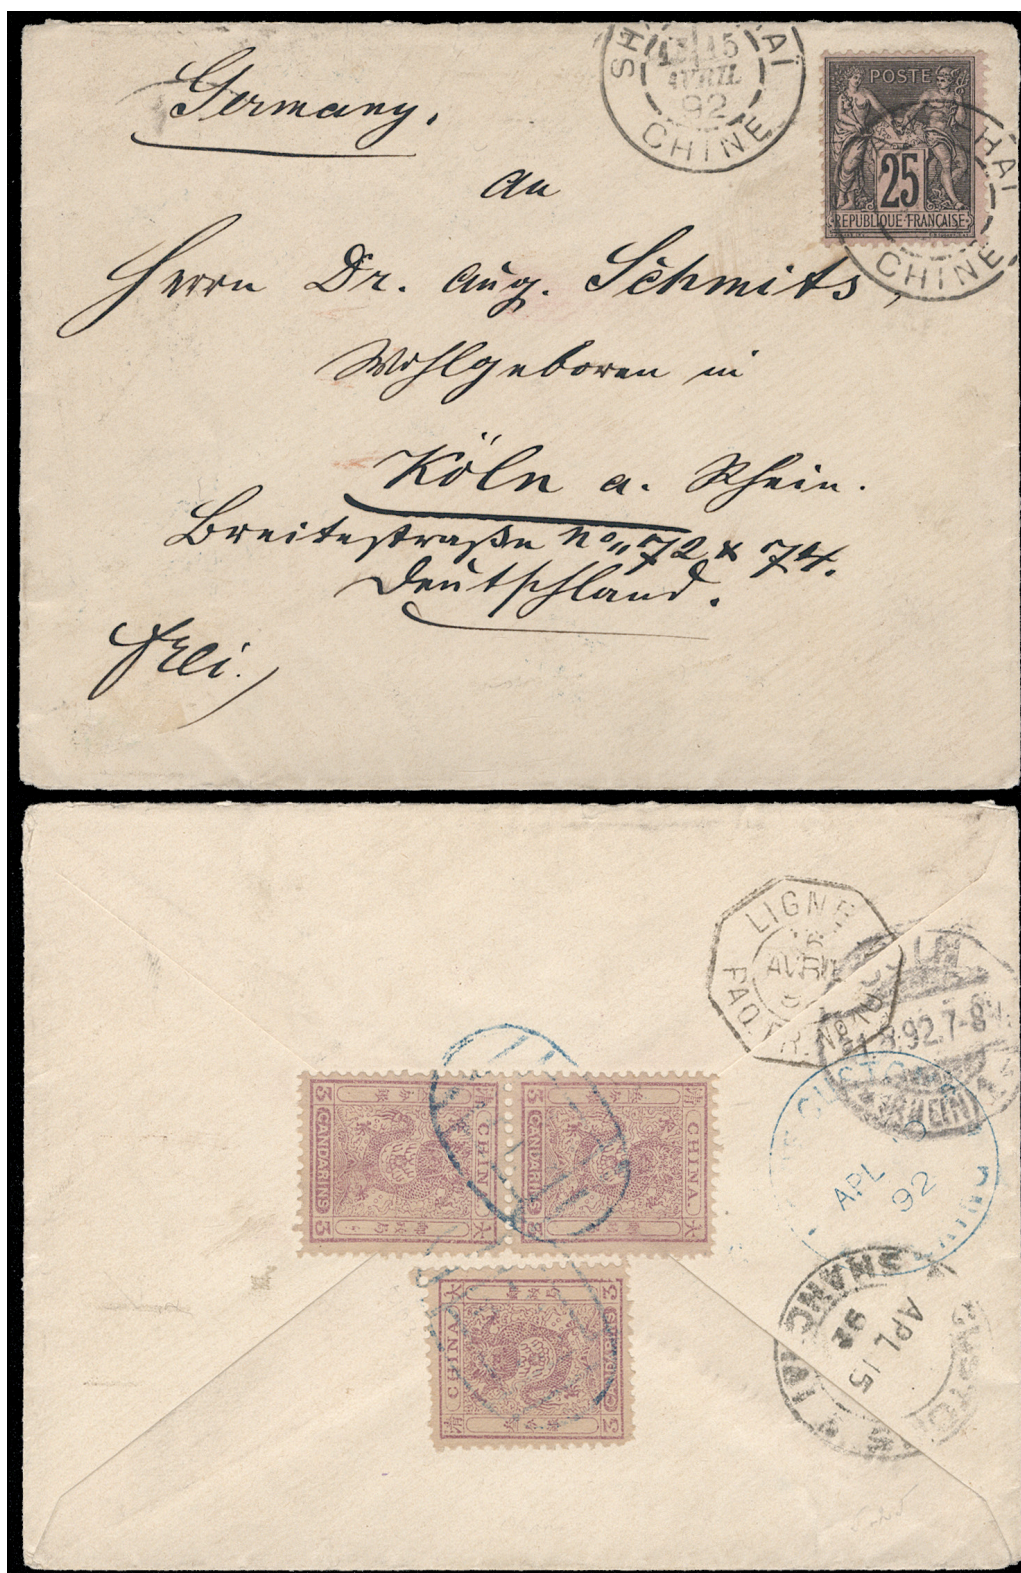 Germany.
SHANG HAÏ
15
AVRIL
92
CHINE
POSTE
25
REPUBLIQUE FRANÇAISE
HAI
CHINE
An
Herrn Dr. Aug. Schmits,
Wohlgeboren in
Köln a. Rhein.
Breitestraße No. 72 & 74.
Deutschland.
frei.
LIGNE
AVRIL
PAQ. FR. No
92.7-8
(RHEIN)
CUSTOMS
APL
92
CHINA
CANDARINS
3
大
CHINA
CANDARINS
3
大
大
CHINA
清
3
SHANGHAI
APL 15
92
CUSTOMS